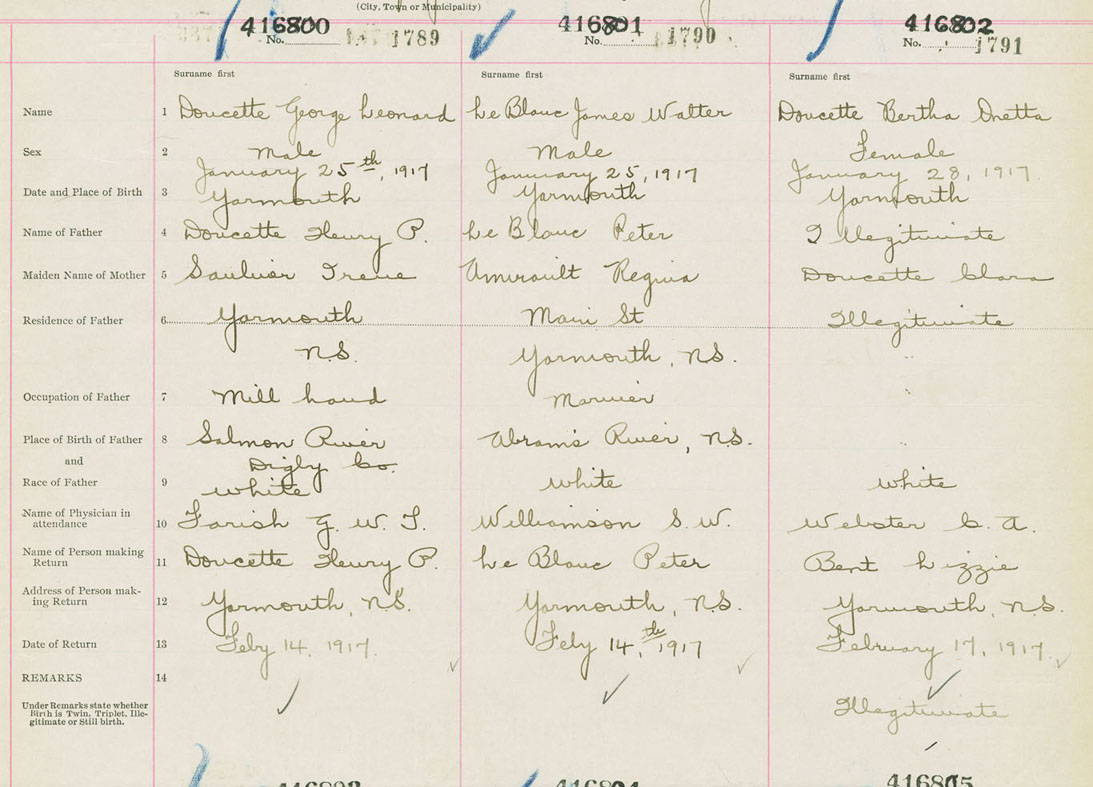 (City, Town or Municipality)
416800 416801 416802
No. 1789 No. 1790 No. 1791
Surname first Surname first Surname first
Name 1 Doucette George Leonard Le Blanc James Walter Doucette Bertha Onetta
Sex 2 Male Male Female
January 25th, 1917 January 25, 1917 January 28, 1917.
Date and Place of Birth 3 Yarmouth Yarmouth Yarmouth
Name of Father 4 Doucette Henry P. Le Blanc Peter Illegitimate
Maiden Name of Mother 5 Saulnier Irene Amirault Regina Doucette Clara
Residence of Father 6 Yarmouth Main St Illegitimate
N.S. Yarmouth, N.S.
Occupation of Father 7 Mill hand Mariner
Place of Birth of Father 8 Salmon River Abram's River, N.S.
and Digby Co.
Race of Father 9 white white white
Name of Physician in
attendance 10 Farish G. W. T. Williamson S. W. Webster C. A.
Name of Person making
Return 11 Doucette Henry P. Le Blanc Peter Bent Lizzie
Address of Person mak-
ing Return 12 Yarmouth, N.S. Yarmouth, N.S. Yarmouth, N.S.
Date of Return 13 Feby 14, 1917. Feby 14,th 1917 February 17, 1917.
REMARKS 14
Under Remarks state whether
Birth is Twin, Triplet, Ille-
gitimate or Still birth. Illegitimate
416803 416804 416805